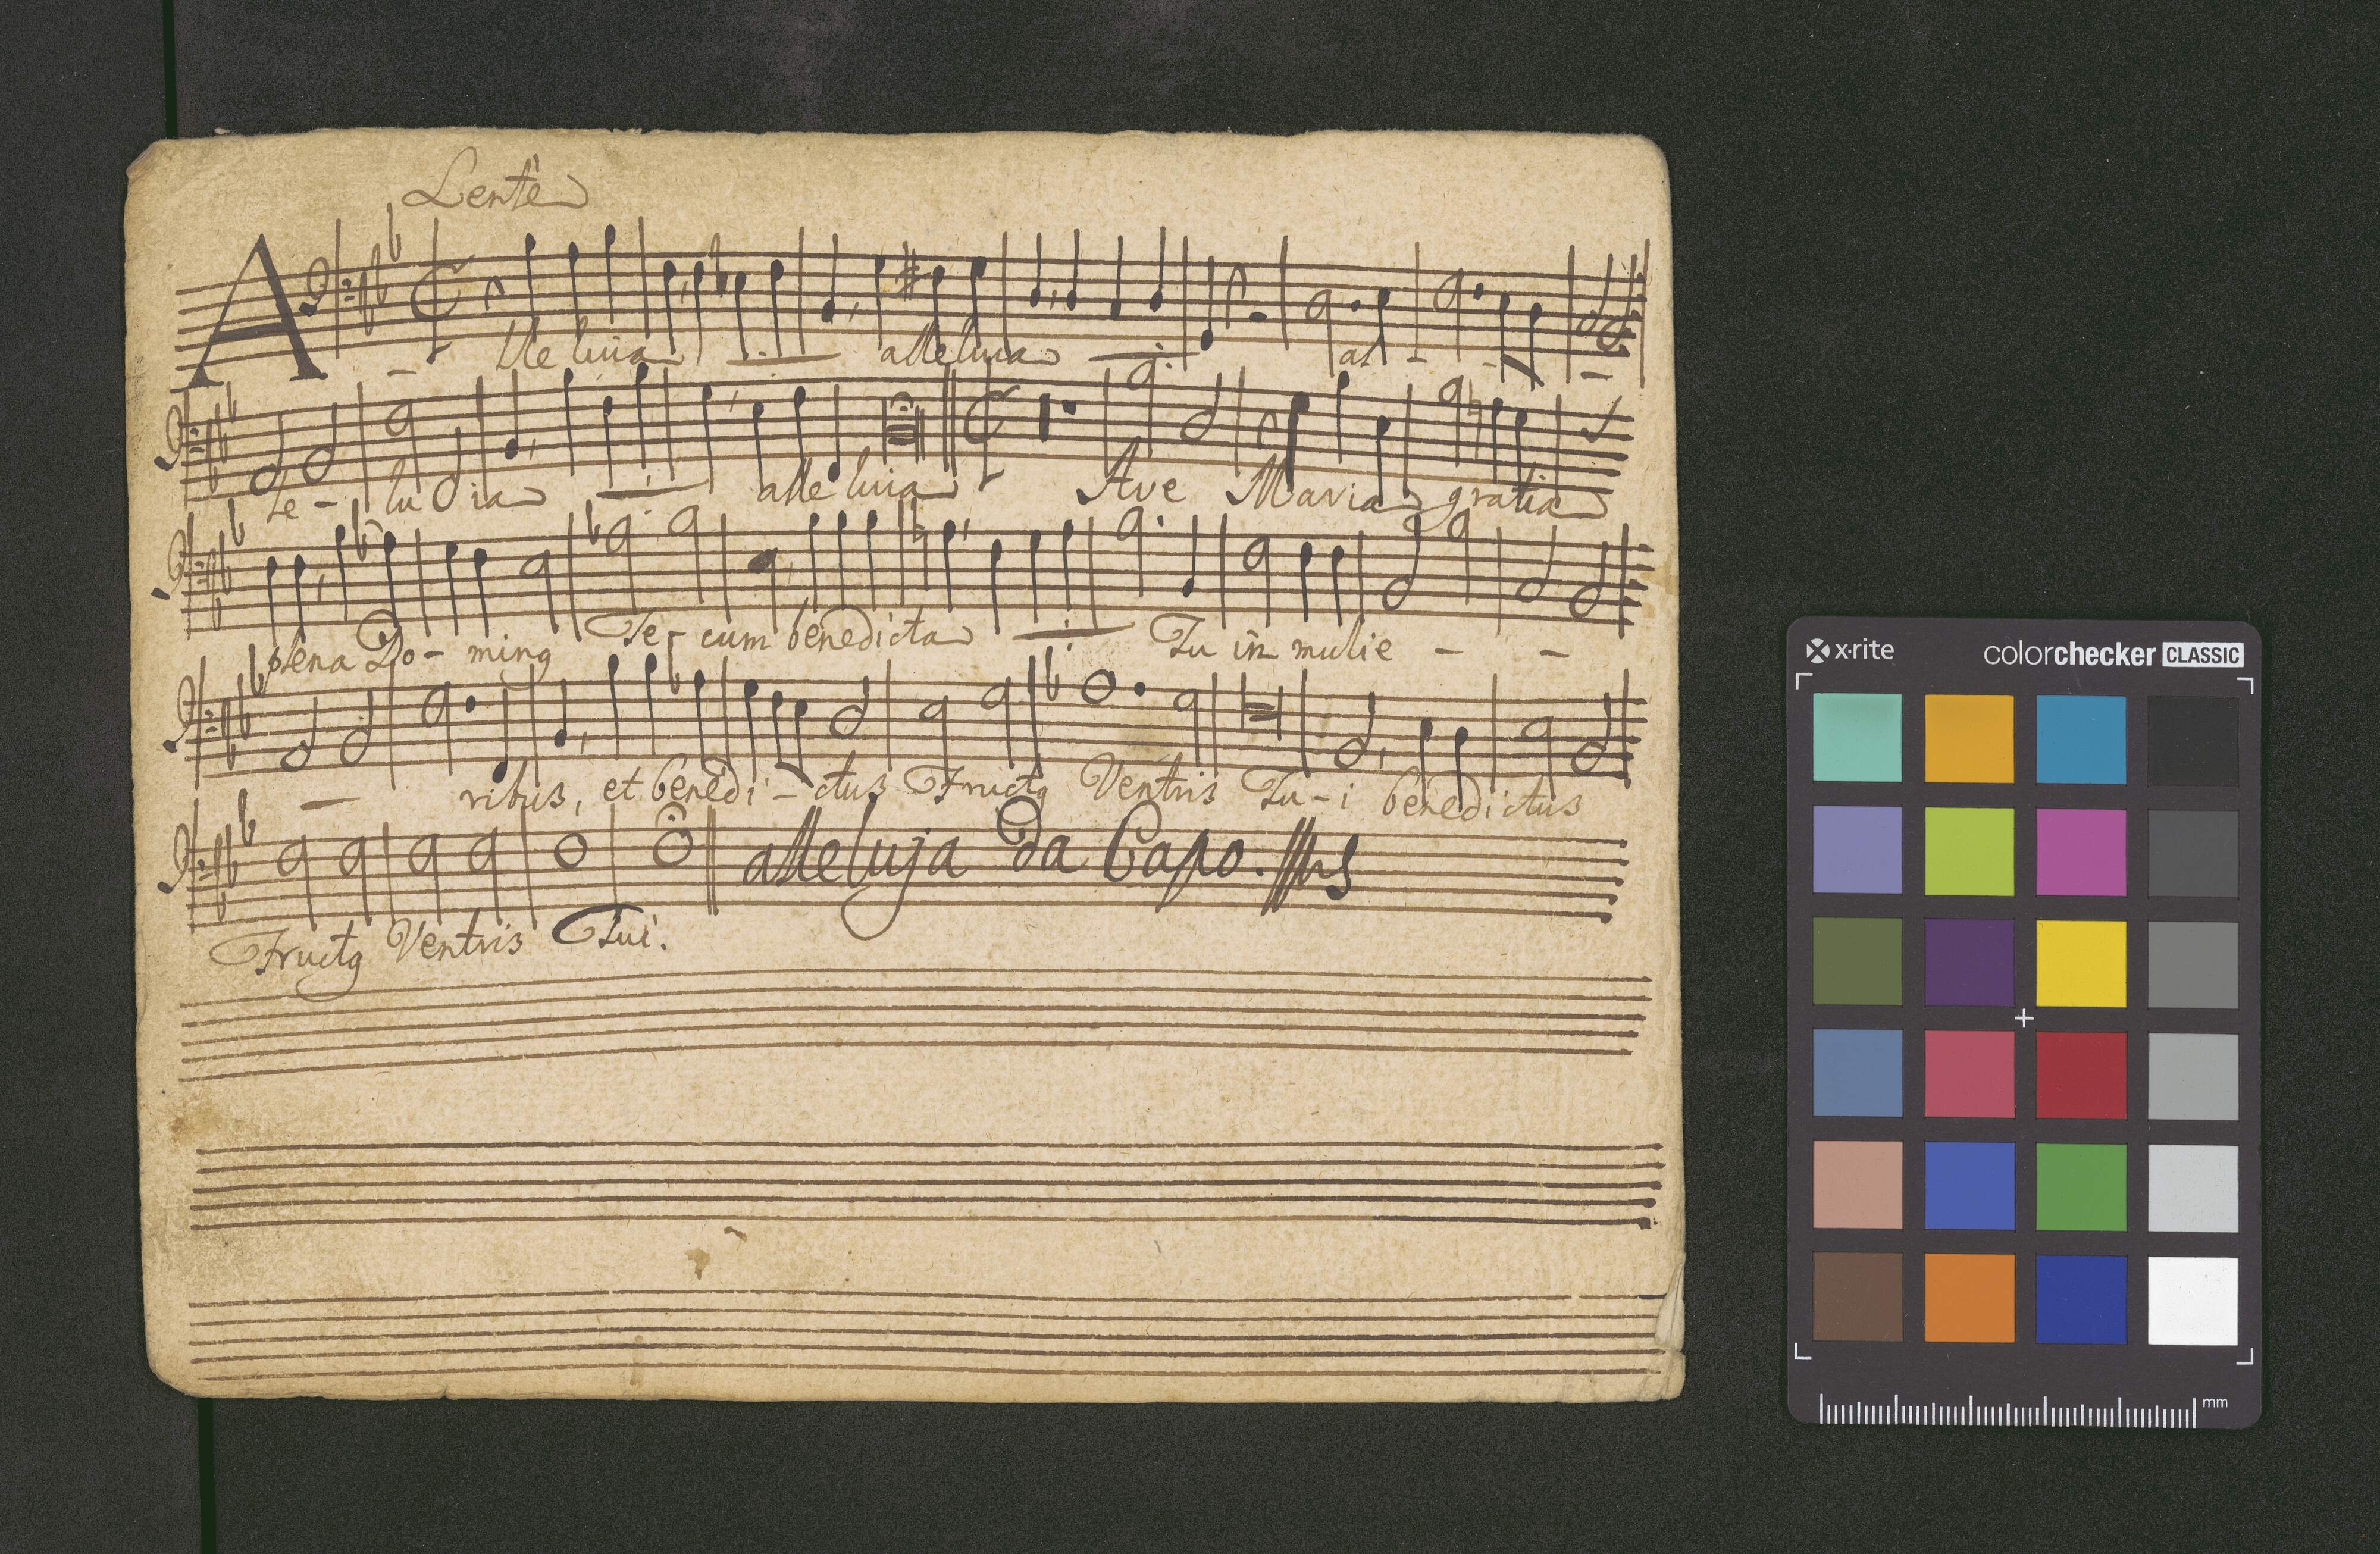 Lentè
Alleluia ∙/∙ alleluia ∙/∙ al - - -
le - luia ∙/∙ alleluia Ave Maria gratia
plena Do - minꝯ Te - cum benedicta ∙/∙ Tu in mulie - -
- ribus, et benedi - ctus Fructꝯ Ventris Tu - i benedictus
alleluja Da Capo.
Fructꝯ Ventris Tui.
x·rite colorchecker CLASSIC
mm